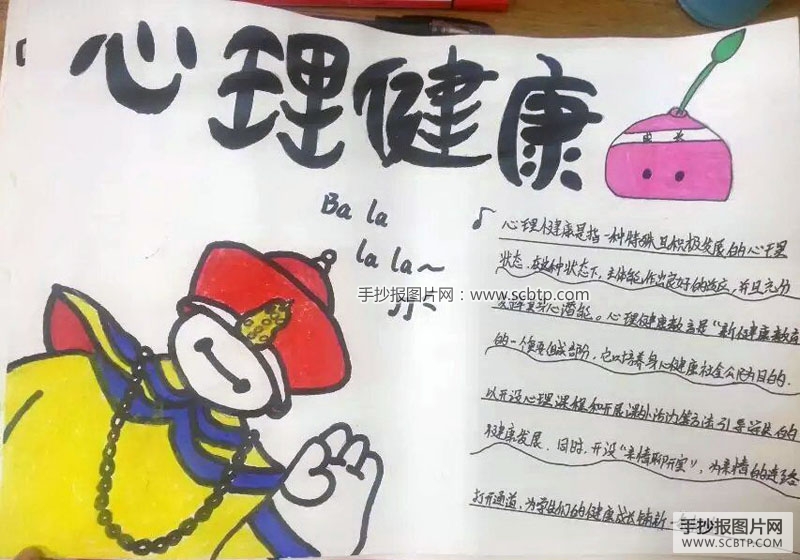 心理健康
成长
Ba la
la la~
手抄报图片网:www.scbtp.com
心理健康是指一种持续且积极发展的心理
状态,在这种状态下,主体能作出良好的适应,并且充分
发挥其身心潜能。心理健康教育是“新健康教育
的一个重要组成部分,它以培养身心健康社会公民为目的,
以开设心理课程和开展课外活动等方法引导学生的
健康发展.同时,开设“亲情聊天室”,为亲情的连络
打开通道,为学生们的健康成长铺新
手抄报图片网
WWW.SCBTP.COM